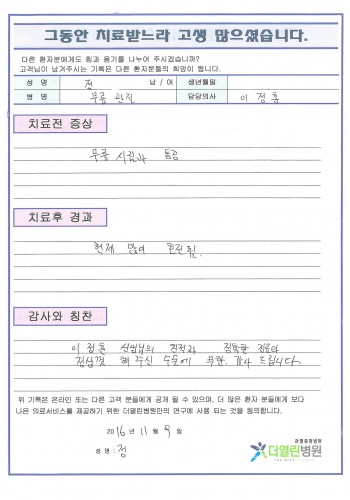 그동안 치료받느라 고생 많으셨습니다.
다른 환자분에게도 힘과 용기를 나누어 주시겠습니까?
고객님이 남겨주시는 기록은 다른 환자분들의 희망이 됩니다.
성 명 정 남 / 여 생년월일
병 명 무릎 관절 담당의사 이 정 훈
치료전 증상
무릎 시림과 통증
치료후 경과
현재 많이 호전됨.
감사와 칭찬
이 정훈 선생님의 친절과 진료와
정성껏 해 주신 수술에 무한 감사 드립니다.
위 기록은 온라인 또는 다른 고객 분들에게 공개 될 수 있으며, 더 많은 환자 분들에게 보다
나은 의료서비스를 제공하기 위한 더열린병원만의 연구에 사용 되는 것을 동의합니다.
2016 년 11 월 9 일
성 명 : 정
관절중점병원
더열린병원